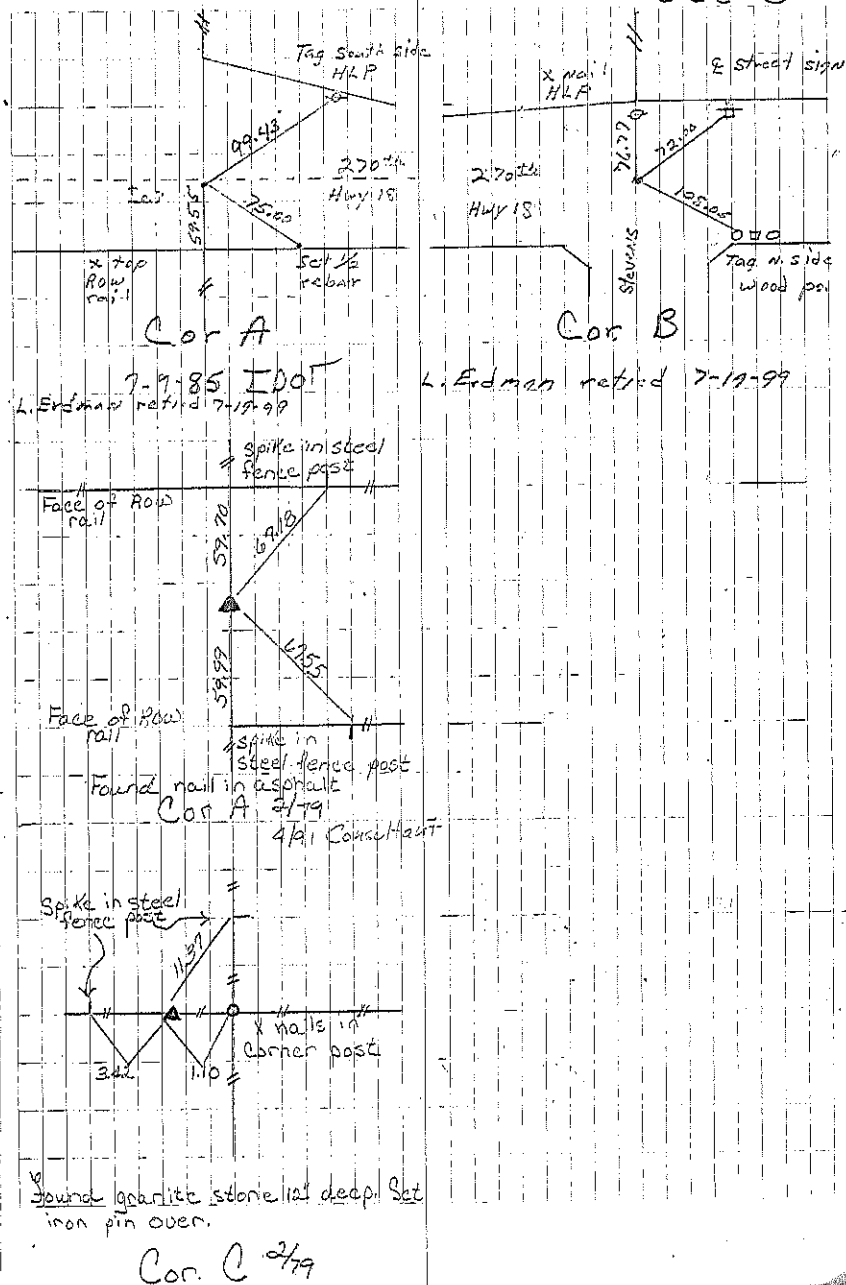 Tag South side
HLP
99.43
270th
Hwy 18
59.55
75.00
x top
Row
rail
Set 1/2
rebar
Cor A
7-9-85 IDOT
L. Erdman retied 7-19-99
x nail
HLP
¢ street sign
76.77
72.00
270th
Hwy 18
105.05
Stevens
Tag N. side
wood
Cor. B
L. Erdman retied 7-19-99
spike in steel
fence post
Face of ROW
rail
59.70
59.99
Face of ROW
rail
spike in
steel fence post
Found nail in asphalt
Cor A 2/79
4/91 Consultant
Spike in steel
fence post
11.37
X nails in
Corner post
3.42
1.10
Found granite stone deep. Set
iron pin over.
Cor. C 2/79